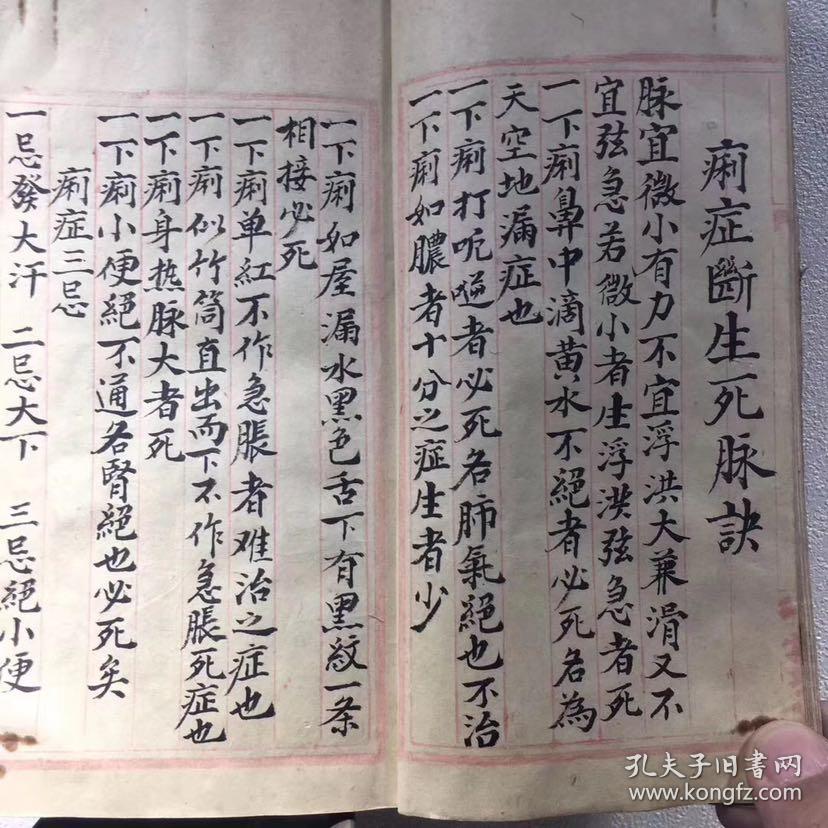 痢症斷生死脉訣
脉宜微小有力不宜浮洪大兼滑又不
宜弦急若微小者生浮洪弦急者死
一下痢鼻中滴黄水不絕者必死名為
天空地漏症也
一下痢打呃逆者必死名肺氣絕也不治
一下痢如膿者十分之症生者少
一下痢如屋漏水黑色舌下有黑紋一条
相接必死
一下痢单紅不作急脹者难治之症也
一下痢似竹筒直出而下不作急脹死症也
一下痢身热脉大者死
一下痢小便絕不通名腎絕也必死矣
痢症三忌
一忌發大汗 二忌大下 三忌絕小便
孔夫子旧书网
www.kongfz.com